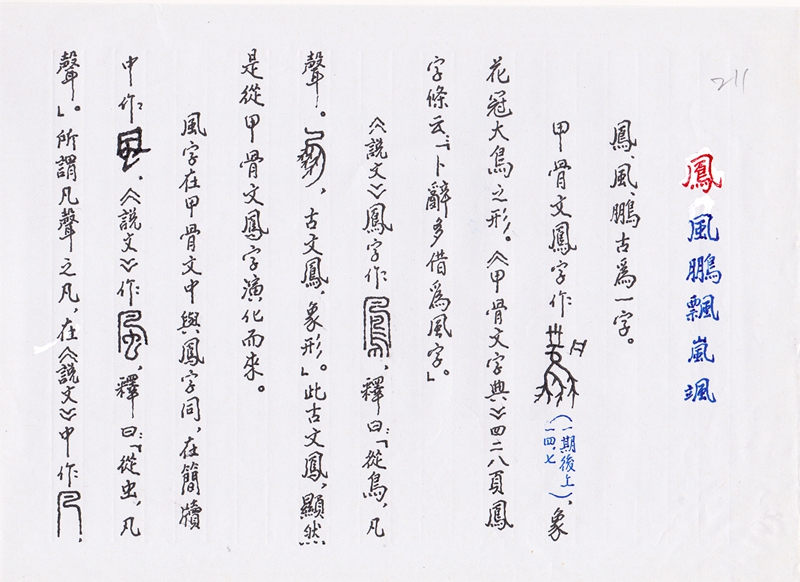 211
鳳 風 鵬 飄 嵐 颯
鳳、風、鵬古爲一字。
甲骨文鳳字作（一期後上一四.七）、象
花冠大鳥之形。《甲骨文字典》四二八頁鳳
字條云:「卜辭多借爲風字。」
《說文》鳳字作，釋曰:「從鳥，凡
聲。，古文鳳，象形」。此古文鳳，顯然
是從甲骨文鳳字演化而來。
風字在甲骨文中與鳳字同，在簡牘
中作，《說文》作，釋曰:「從虫，凡
聲」。所謂凡聲之凡，在《說文》中作，